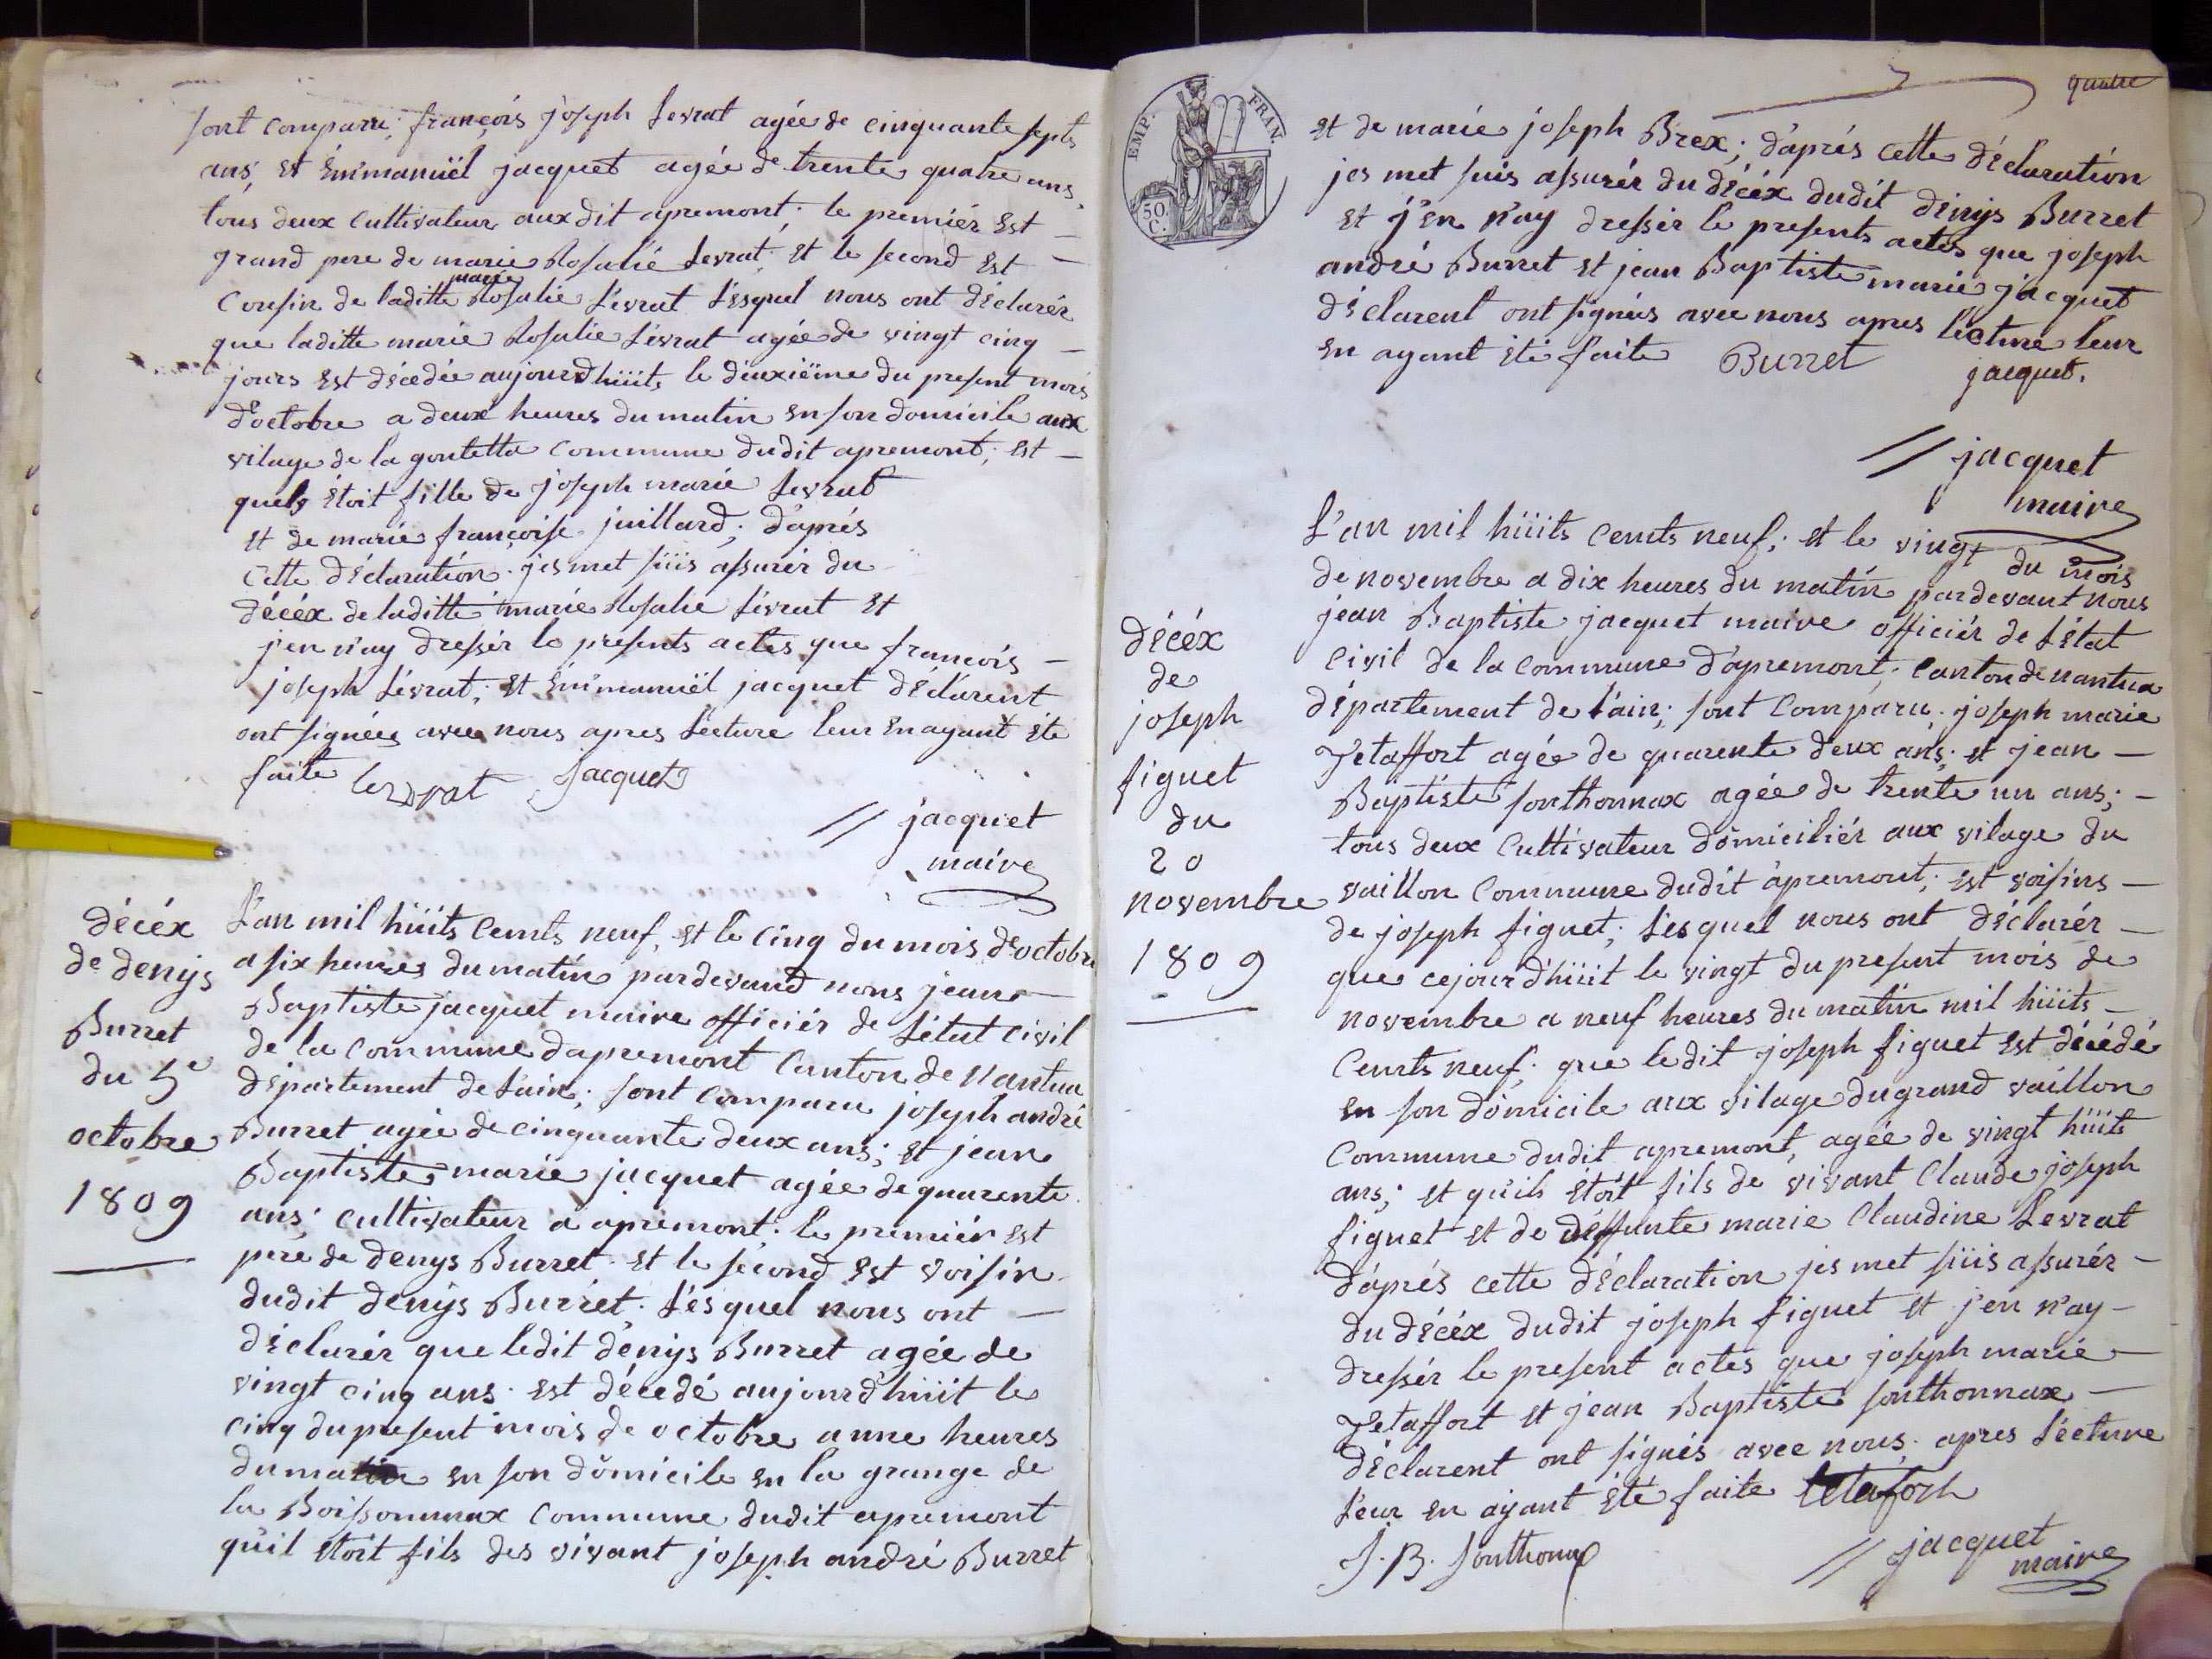 sont comparu; françois joseph Levrat agée de cinquante septs
ans, et Emmanuël jacquet agée de trente quatre ans,
tous deux Cultivateur aux dit apremont; le premiér est —
grand pere de marie Rosalie Levrat; et le second est —
Cousin de laditte marie Rosalie Levrat Lesquel nous ont déclarér
que laditte marie Rosalie Levrat agée de vingt cinq —
jours est décedée aujourdhüits le deuxieïme du present mois
d'octobre a deux heures du matin en son domicile aux
vilage de la goutetta Commune dudit apremont; est —
quels étoit fille de joseph marie Levrat
et de marie françoise juillard; d'aprés
Cette déclaration jes met süis assurér du
décéx de laditte marie Rosalie Levrat et
j'en n'ay dressér le presents actes que françois —
joseph Levrat; et Emmanuël jacquet déclarent
ont signées avec nous apres Lecture leur en ayant été
faite levrat Jacquet
// jacquet
maire
décéx
de denijs
Burret
du 5e
octobre
1809
L'an mil hüits Cents neuf, et le Cinq du mois d'octobre
a six heures du matin pardevand nous jean —
Baptiste jacquet maire officiér de L'état Civil
de la Commune dapremont Canton de Nantua
département de Lain; sont Comparu joseph andré
Burret agée de cinquante deux ans; et jean
Baptiste marie jacquet agée de quarente
ans; Cultivateur a apremont; le premiér est
pere de denijs Burret et le second est voisin
dudit denijs Burret. Lesquel nous ont —
déclarér que ledit denijs Burret agée de
vingt cinq ans est décedé aujourdhüit le
cinq du present mois de octobre a une heures
du matin en son domicile en la grange de
la Boissonnax Commune dudit apremont
qu'il étoit fils des vivant joseph andré Burret
quatre
EMP. FRAN.
50.
C.
et de marie joseph Brex; d'aprés cette déclaration
jes met suis assurér du décéx dudit denijs Burret
et j'en n'ay dressér le presents actes que joseph
andré Burret et jean Baptiste marie jacquet
déclarent ont signées avec nous apres lecture leur
en ayant été faite Burret jacquet.
// jacquet
maire
décéx
de
joseph
figuet
du
20
novembre
1809
L'an mil hüits Cents neuf; et le vingt du mois
de novembre a dix heures du matin pardevant nous
jean Baptiste jacquet maire officiér de L'état
Civil de la Commune d'apremont; Canton de nantua
département de L'ain; sont Comparu joseph marie
Tetaffort agée de quarente deux ans; et jean —
Baptiste sonthonnax agée de trente un ans; —
tous deux Cultivateur domiciliér aux vilage du
vaillon Commune dudit apremont; est voisins —
de joseph figuet; Lesquel nous ont déclarér —
que cejourd'hüit le vingt du present mois de
novembre a neuf heures du matin mil hüits —
Cents neuf; que ledit joseph figuet est décédé
en son domicile aux vilage du grand vaillon
Commune dudit apremont, agée de vingt hüits
ans; et qu'ils étoit fils de vivant Claude joseph
figuet et de deffunte marie Claudine Levrat
d'aprés cette déclaration jes met süis assurér —
du décéx dudit joseph figuet et j'en n'ay —
dressér le present actes que joseph marie —
Tetaffort et jean Baptiste sonthonnax —
déclarent ont signés avec nous apres Lecture
Leur en aÿant été faite tetafort
J. B. Sonthonax
// jacquet
maire